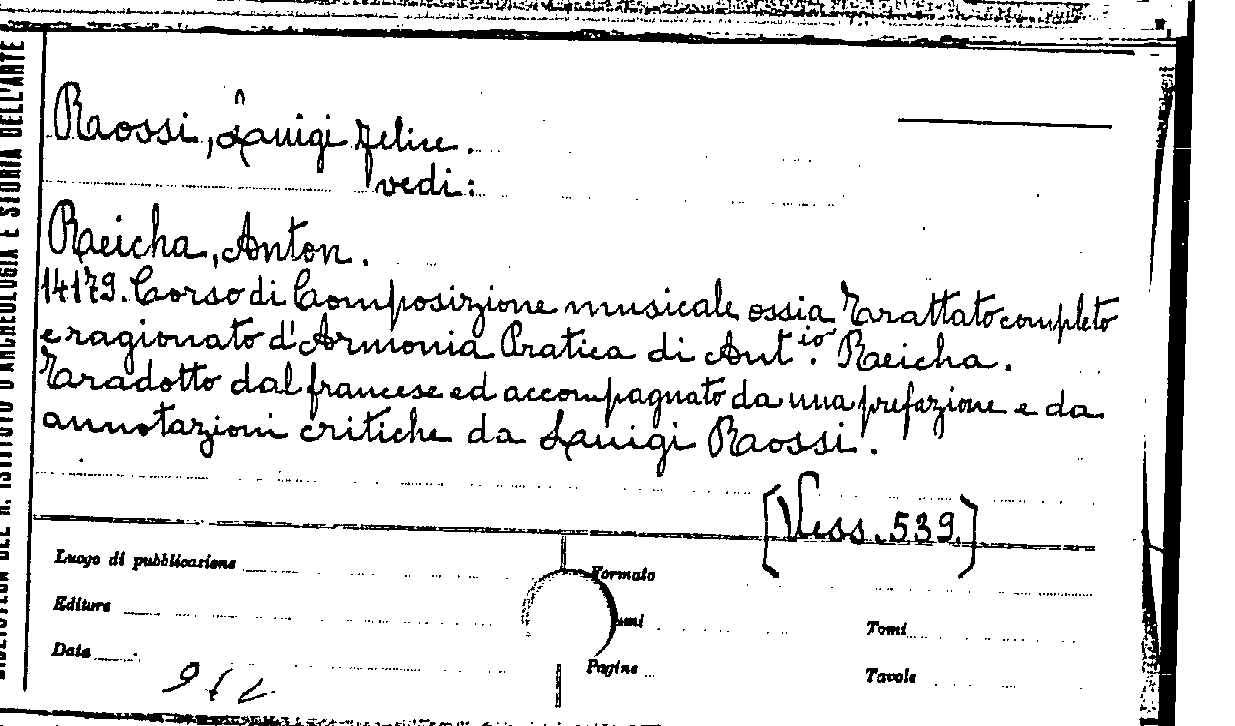 BIBLIOTECA DEL R. ISTITUTO D'ARCHEOLOGIA E STORIA DELL'ARTE
Rossi, Luigi Felice.
vedi:
Reicha, Anton.
14179. Corso di Composizione musicale ossia Trattato completo
e ragionato d'Armonia Pratica di Ant.io Reicha.
Tradotto dal francese ed accompagnato da una prefazione e da
annotazioni critiche da Luigi Rossi.
[Vess. 539.]
Luogo di pubblicazione
Formato
Editore
umi
Tomi
Data
Pagine
Tavole